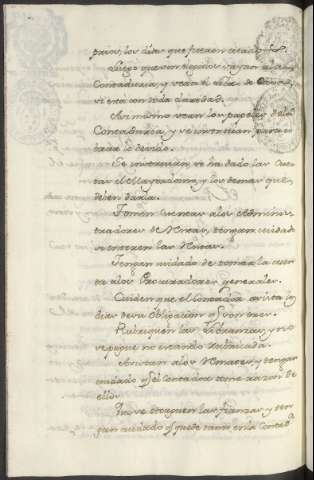 para, los dias que fueren citados.
Luego que son llegados vayan a la
Contaduria, y vean el libro de
esta con toda claridad.
Asi mismo vean los papeles de la
Contaduria, y se instruian para en
todo lo devido.
Se instruian, si ha dado las Cuen
tas el Mayordomo, y los demas que
deven darlas.
Tomen Cuentas a los Adminis
tradores de Rentas, tengan cuidado
se enteren las Rentas.
Tengan cuidado de tomar la cuen
ta a los Procuradores generales.
Cuiden que el Contador asista los
dias de su obligacion
Rubriquen las Libranzas, y no
se pague no estando Rubricada.
Asistan a los Remates, y tengan
cuidado q.e el Contador tome razon de
ellos.
las fianzas y ten
gan cuidado q.e quede razon en la Contad.a